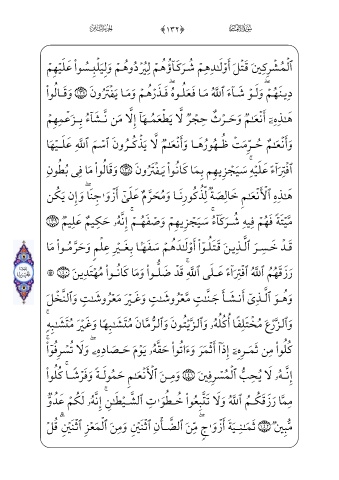 سورة الأنعام ﴿١٣٢﴾ الجزء الثامن
ٱلْمُشْرِكِينَ قَتْلَ أَوْلَٰدِهِمْ شُرَكَآؤُهُمْ لِيُرْدُوهُمْ وَلِيَلْبِسُوا۟ عَلَيْهِمْ
دِينَهُمْ ۖ وَلَوْ شَآءَ ٱللَّهُ مَا فَعَلُوهُ ۖ فَذَرْهُمْ وَمَا يَفْتَرُونَ وَقَالُوا۟
هَٰذِهِۦٓ أَنْعَٰمٌ وَحَرْثٌ حِجْرٌ لَّا يَطْعَمُهَآ إِلَّا مَن نَّشَآءُ بِزَعْمِهِمْ
وَأَنْعَٰمٌ حُرِّمَتْ ظُهُورُهَا وَأَنْعَٰمٌ لَّا يَذْكُرُونَ ٱسْمَ ٱللَّهِ عَلَيْهَا
ٱفْتِرَآءً عَلَيْهِ ۚ سَيَجْزِيهِم بِمَا كَانُوا۟ يَفْتَرُونَ وَقَالُوا۟ مَا فِى بُطُونِ
هَٰذِهِ ٱلْأَنْعَٰمِ خَالِصَةٌ لِّذُكُورِنَا وَمُحَرَّمٌ عَلَىٰٓ أَزْوَٰجِنَا ۖ وَإِن يَكُن
مَّيْتَةً فَهُمْ فِيهِ شُرَكَآءُ ۚ سَيَجْزِيهِمْ وَصْفَهُمْ ۚ إِنَّهُۥ حَكِيمٌ عَلِيمٌ
قَدْ خَسِرَ ٱلَّذِينَ قَتَلُوٓا۟ أَوْلَٰدَهُمْ سَفَهًۢا بِغَيْرِ عِلْمٍ وَحَرَّمُوا۟ مَا
رَزَقَهُمُ ٱللَّهُ ٱفْتِرَآءً عَلَى ٱللَّهِ ۚ قَدْ ضَلُّوا۟ وَمَا كَانُوا۟ مُهْتَدِينَ ۞
وَهُوَ ٱلَّذِىٓ أَنشَأَ جَنَّٰتٍ مَّعْرُوشَٰتٍ وَغَيْرَ مَعْرُوشَٰتٍ وَٱلنَّخْلَ
وَٱلزَّرْعَ مُخْتَلِفًا أُكُلُهُۥ وَٱلزَّيْتُونَ وَٱلرُّمَّانَ مُتَشَٰبِهًا وَغَيْرَ مُتَشَٰبِهٍ ۚ
كُلُوا۟ مِن ثَمَرِهِۦٓ إِذَآ أَثْمَرَ وَءَاتُوا۟ حَقَّهُۥ يَوْمَ حَصَادِهِۦ ۖ وَلَا تُسْرِفُوٓا۟ ۚ
إِنَّهُۥ لَا يُحِبُّ ٱلْمُسْرِفِينَ وَمِنَ ٱلْأَنْعَٰمِ حَمُولَةً وَفَرْشًا ۚ كُلُوا۟
مِمَّا رَزَقَكُمُ ٱللَّهُ وَلَا تَتَّبِعُوا۟ خُطُوَٰتِ ٱلشَّيْطَٰنِ ۚ إِنَّهُۥ لَكُمْ عَدُوٌّ
مُّبِينٌ ثَمَٰنِيَةَ أَزْوَٰجٍ ۖ مِّنَ ٱلضَّأْنِ ٱثْنَيْنِ وَمِنَ ٱلْمَعْزِ ٱثْنَيْنِ ۗ قُلْ